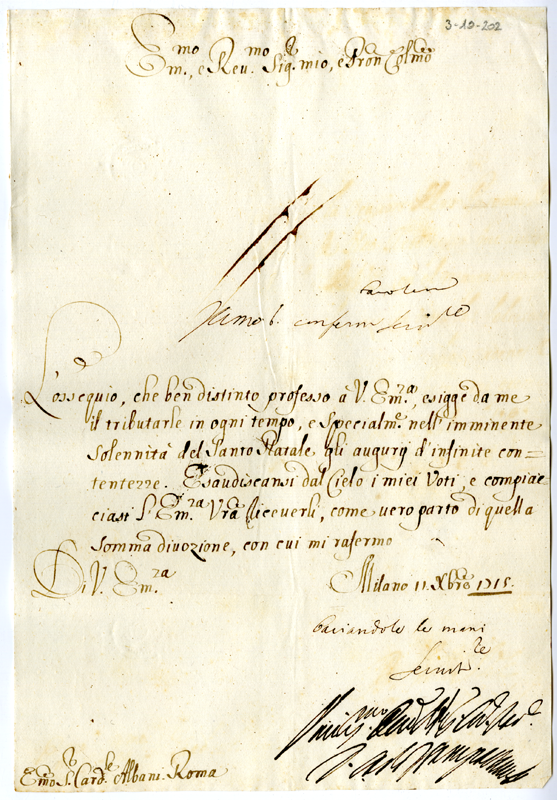 3-10-202
Em.mo, e Rev.mo Sig.r mio, e Pron Colmo
L'ossequio, che ben distinto professo à V. Em.za, esigge da me
il tributarle in ogni tempo, e specialm.e nell'imminente
solennità del Santo Natale gli augurÿ d'infinite con=
tentezze. Esaudiscansi dal Cielo i miei Voti, e compiac=
ciasi l'Em.za Vra riceverli, come vero parto di quella
somma divozione, con cui mi rafermo
Di V. Em.za
Milano 11. Xbre 1715.
baciandole le mani
Emo S.r Card.le Albani Roma